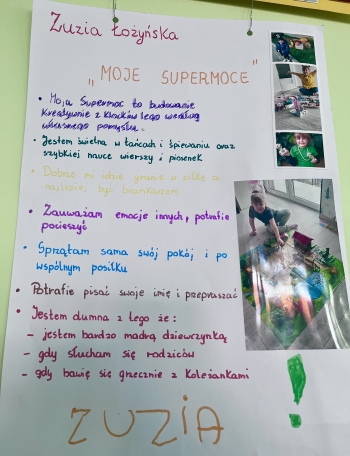 Zuzia Łożyńska
„MOJE SUPERMOCE"
• Moja Supermoc to budowanie
kreatywnie z klocków lego według
własnego pomysłu.
• Jestem świetna w tańcach i śpiewaniu oraz
szybkiej nauce wierszy i piosenek
• Dobrze mi idzie granie w piłkę a
najlepiej być bramkarzem
• Zauważam emocje innych, potrafie
pocieszyć
• Sprzątam sama swój pokój i po
wspólnym posiłku
• Potrafie pisać swoje imię i przepraszać
• Jestem dumna z tego że:
– jestem bardzo mądrą dziewczynką
– gdy słucham się rodziców
– gdy bawię się grzecznie z koleżankami
!
ZUZIA